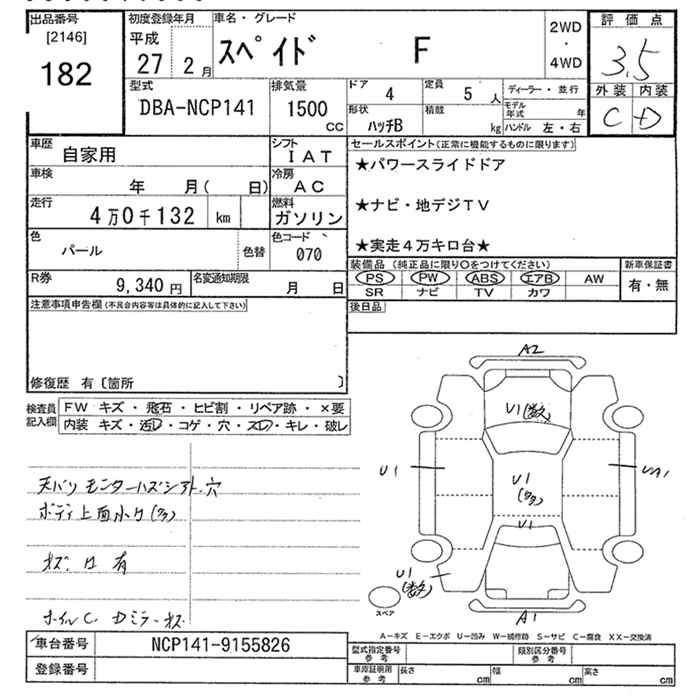 出品番号 初度登録年月 車名・グレード 評価点
[2146] 平成 2WD
182 27 2月 スペイド F ・ 3.5
4WD
型式 排気量 ドア 4 定員 5人 ディーラー・並行 外装 内装
DBA-NCP141 1500 CC 形状 ハッチB 積載 kg モデル年式 年 C D
ハンドル 左・右
車歴 自家用 シフト IAT セールスポイント(正常に機能するものに限ります)
★パワースライドドア
車検 年 月( 日) 冷房 AC
★ナビ・地デジTV
走行 4万0千132 km 燃料 ガソリン
★実走4万キロ台★
色 パール 色替 色コード 070
装備品(純正品に限り○をつけてください) 新車保証書
R券 9,340円 名変通知期限 月 日 PS PW ABS エアB AW 有・無
SR ナビ TV カワ
注意事項申告欄(不具合内容等は具体的に記入して下さい) 後日品
修復歴 有〔箇所 〕
検査員記入欄 FW キズ・飛石・ヒビ割・リペア跡・×要
内装 キズ・汚レ・コゲ・穴・スレ・キレ・破レ
天バリ モニターハズシアト.穴
ボディ上面小U(多)
キズ.U有
ホイルC Dミラーキズ
A2
U1(多数)
U1
U1
(多)
U1
U1
(多数)
A1
スペア
A-キズ E-エクボ U-凹み W-補修跡 S-サビ C-腐食 XX-交換済
車台番号 NCP141-9155826 型式指定番号参考 類別区分番号参考
登録番号 車庫証明用参考 長さ cm 幅 cm 高さ cm